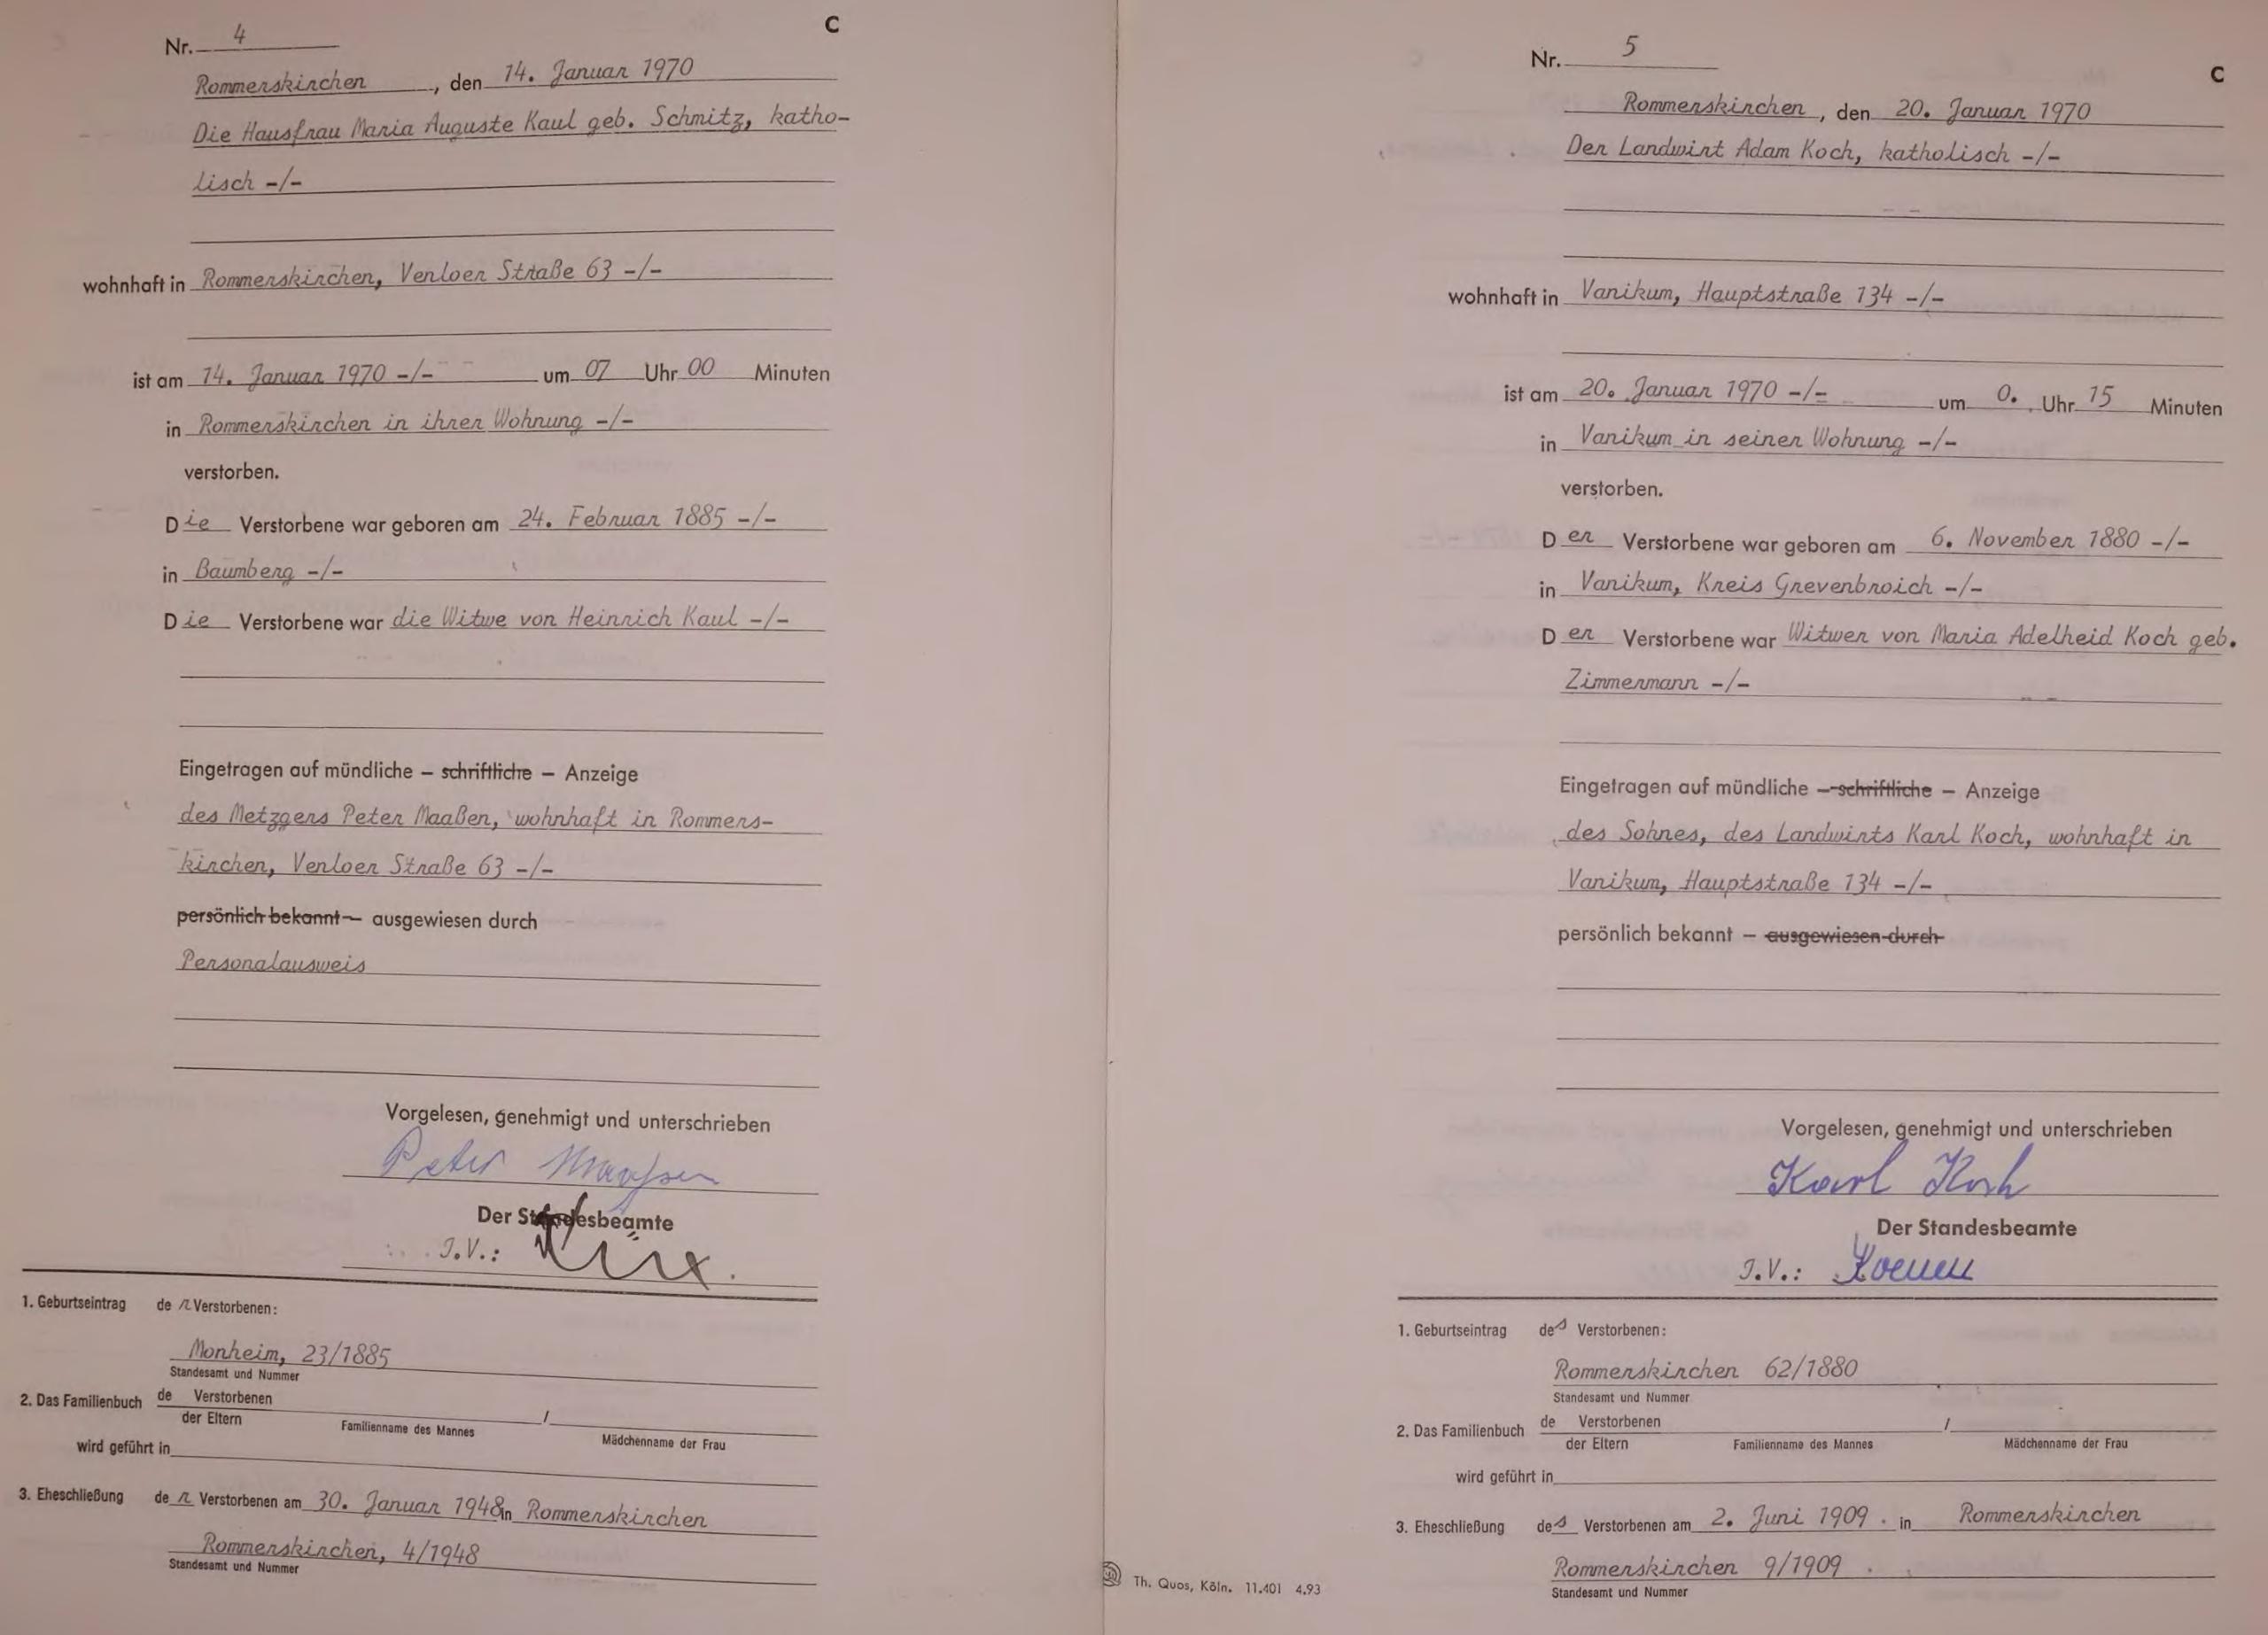 Nr. 4
C
Rommerskirchen, den 14. Januar 1970
Die Hausfrau Maria Auguste Kaul geb. Schmitz, katho-
lisch -/-
wohnhaft in Rommerskirchen, Venloer Straße 63 -/-
ist am 14. Januar 1970 -/- um 07 Uhr 00 Minuten
in Rommerskirchen in ihrer Wohnung -/-
verstorben.
Die Verstorbene war geboren am 24. Februar 1885 -/-
in Baumberg -/-
Die Verstorbene war die Witwe von Heinrich Kaul -/-
Eingetragen auf mündliche – schriftliche – Anzeige
des Metzgers Peter Maaßen, wohnhaft in Rommers-
kirchen, Venloer Straße 63 -/-
persönlich bekannt – ausgewiesen durch
Personalausweis
Vorgelesen, genehmigt und unterschrieben
Peter Maaßen
Der Standesbeamte
J.V.:
1. Geburtseintrag der Verstorbenen:
Monheim, 23/1885
Standesamt und Nummer
2. Das Familienbuch de Verstorbenen
der Eltern
/
Familienname des Mannes Mädchenname der Frau
wird geführt in
3. Eheschließung der Verstorbenen am 30. Januar 1948 in Rommerskirchen
Rommerskirchen, 4/1948
Standesamt und Nummer
Th. Quos, Köln. 11.401 4.93
Nr. 5
C
Rommerskirchen, den 20. Januar 1970
Der Landwirt Adam Koch, katholisch -/-
wohnhaft in Vanikum, Hauptstraße 134 -/-
ist am 20. Januar 1970 -/- um 0. Uhr 15 Minuten
in Vanikum in seiner Wohnung -/-
verstorben.
Der Verstorbene war geboren am 6. November 1880 -/-
in Vanikum, Kreis Grevenbroich -/-
Der Verstorbene war Witwer von Maria Adelheid Koch geb.
Zimmermann -/-
Eingetragen auf mündliche – schriftliche – Anzeige
des Sohnes, des Landwirts Karl Koch, wohnhaft in
Vanikum, Hauptstraße 134 -/-
persönlich bekannt – ausgewiesen durch
Vorgelesen, genehmigt und unterschrieben
Karl Koch
Der Standesbeamte
J.V.: Koenen
1. Geburtseintrag des Verstorbenen:
Rommerskirchen 62/1880
Standesamt und Nummer
2. Das Familienbuch de Verstorbenen
der Eltern
/
Familienname des Mannes Mädchenname der Frau
wird geführt in
3. Eheschließung des Verstorbenen am 2. Juni 1909 . in Rommerskirchen
Rommerskirchen 9/1909
Standesamt und Nummer